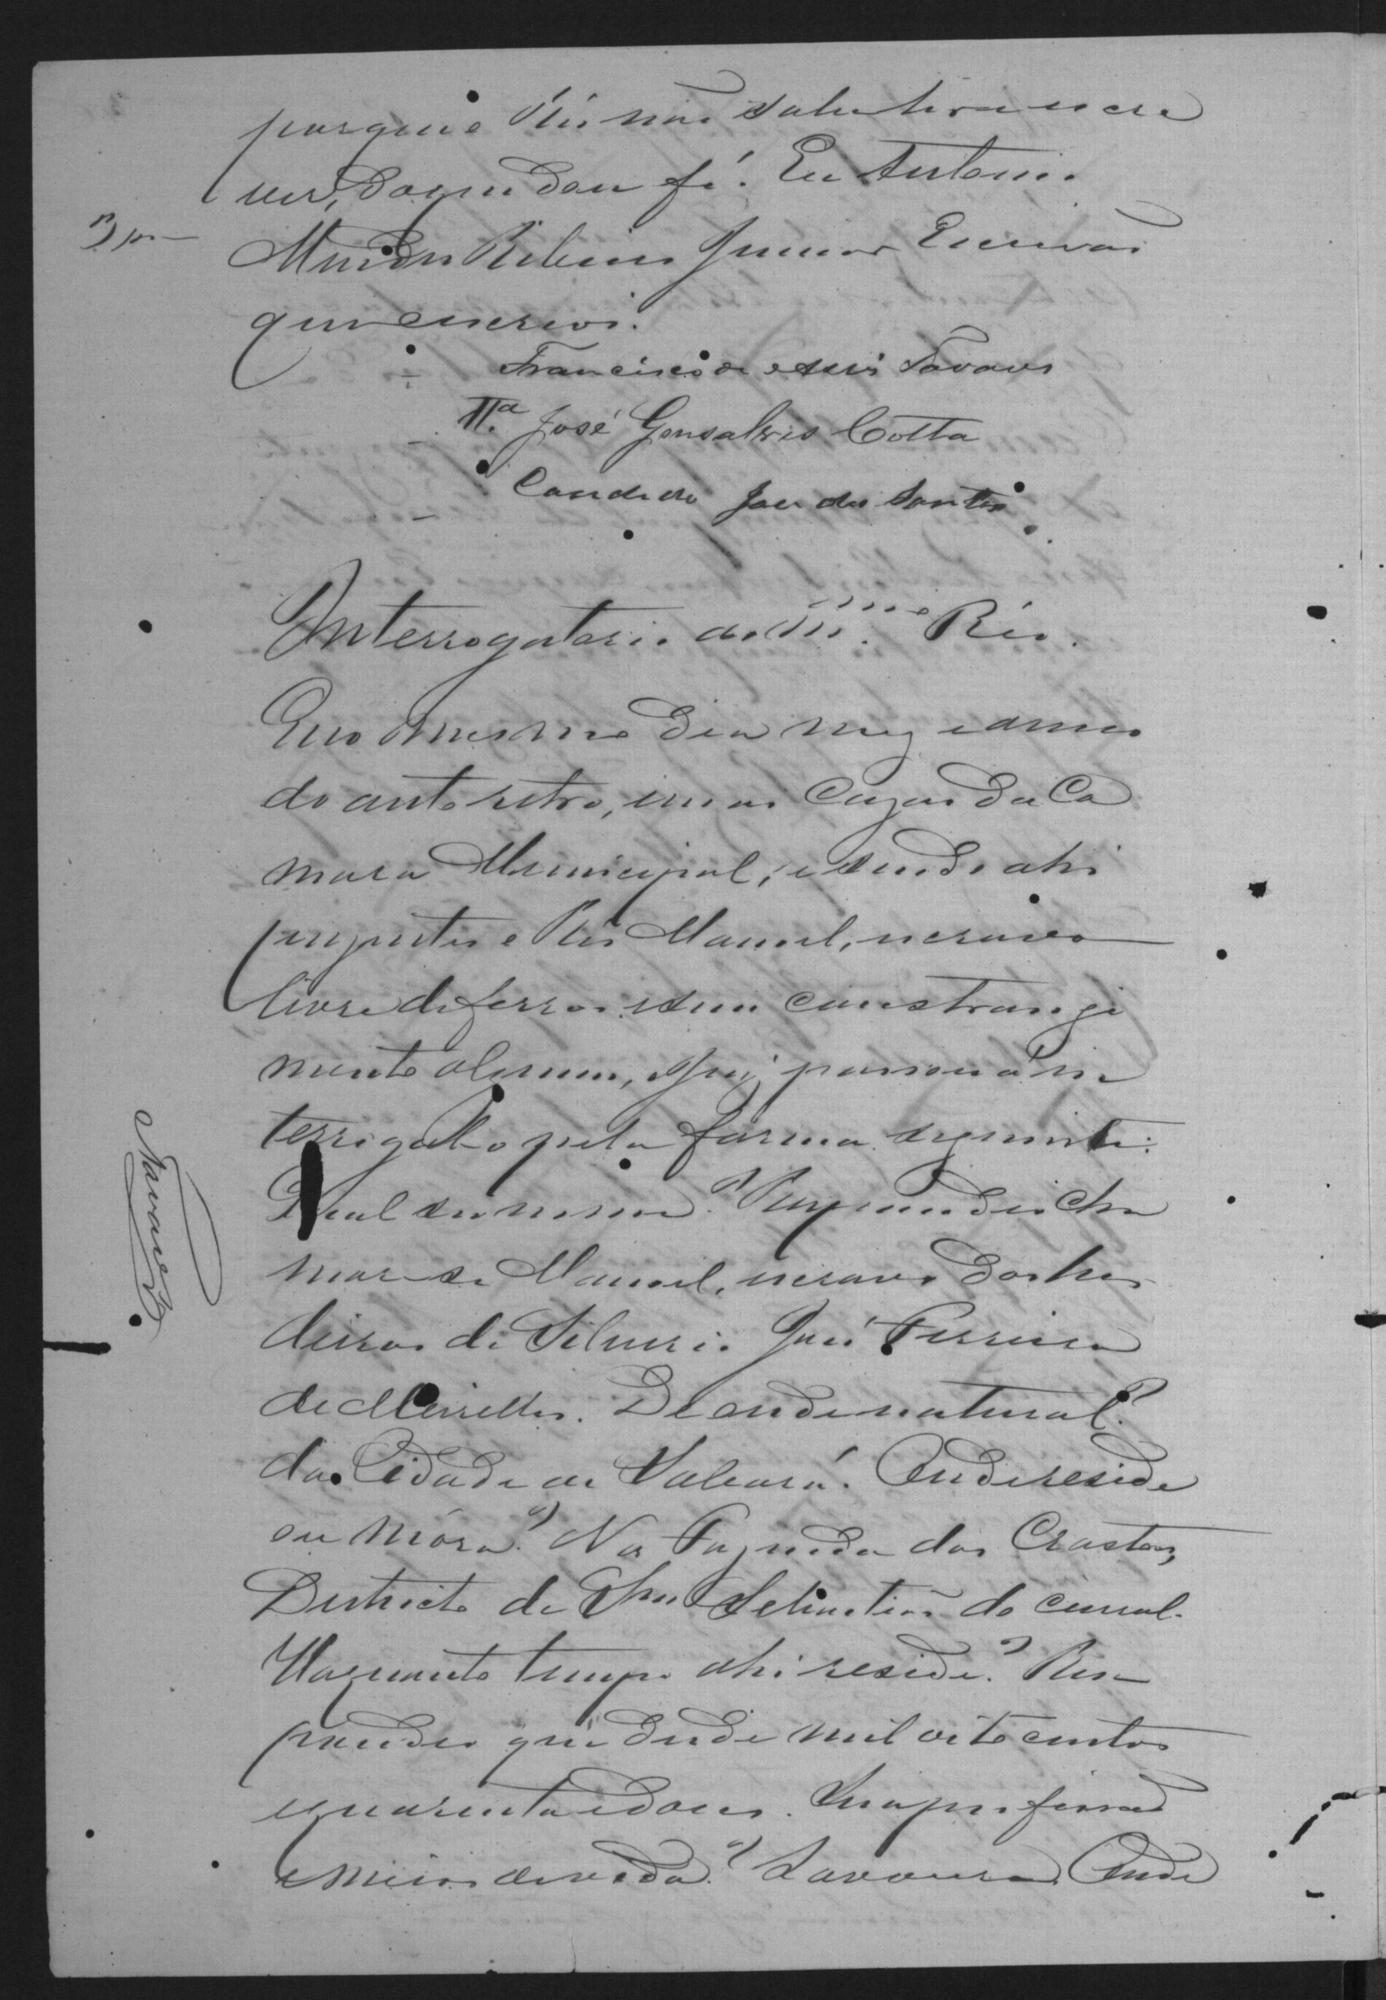 porque o Réo não saber ler e escre
ver, do que dou fé. Eu Antonio
Mendes Ribeiro Junior Escrivão
que escrevi.
Francisco de Assis Tavares
Tª José Gonsalves Cotta
Candido José dos Santos
Interrogatorio ao Réo.
E no mesmo dia mez e anno
do auto retro, em as Cazas da Ca
mara Municipal, e sendo ahi
prezente o Réo Manoel, escravo
livre de ferros e sem constrangi
mento algum, o Juiz passou a in
terrogal-o pela forma seguinte:
Qual seu nome? Respondeu cha
mar-se Manoel, escravo dos her
deiros de Silverio José Ferreira
de Meirelles. De onde natural?
da Cidade de Sabará. Onde reside
ou móra? Na Fazenda dos Crastos,
Districto de Sebastião do Curral.
Ha quanto tempo ahi reside? Res
pondeu que desde mil oito centos
e quarenta e dous. Sua profissão
e meios de vida? Lavoura. Onde
Tavares